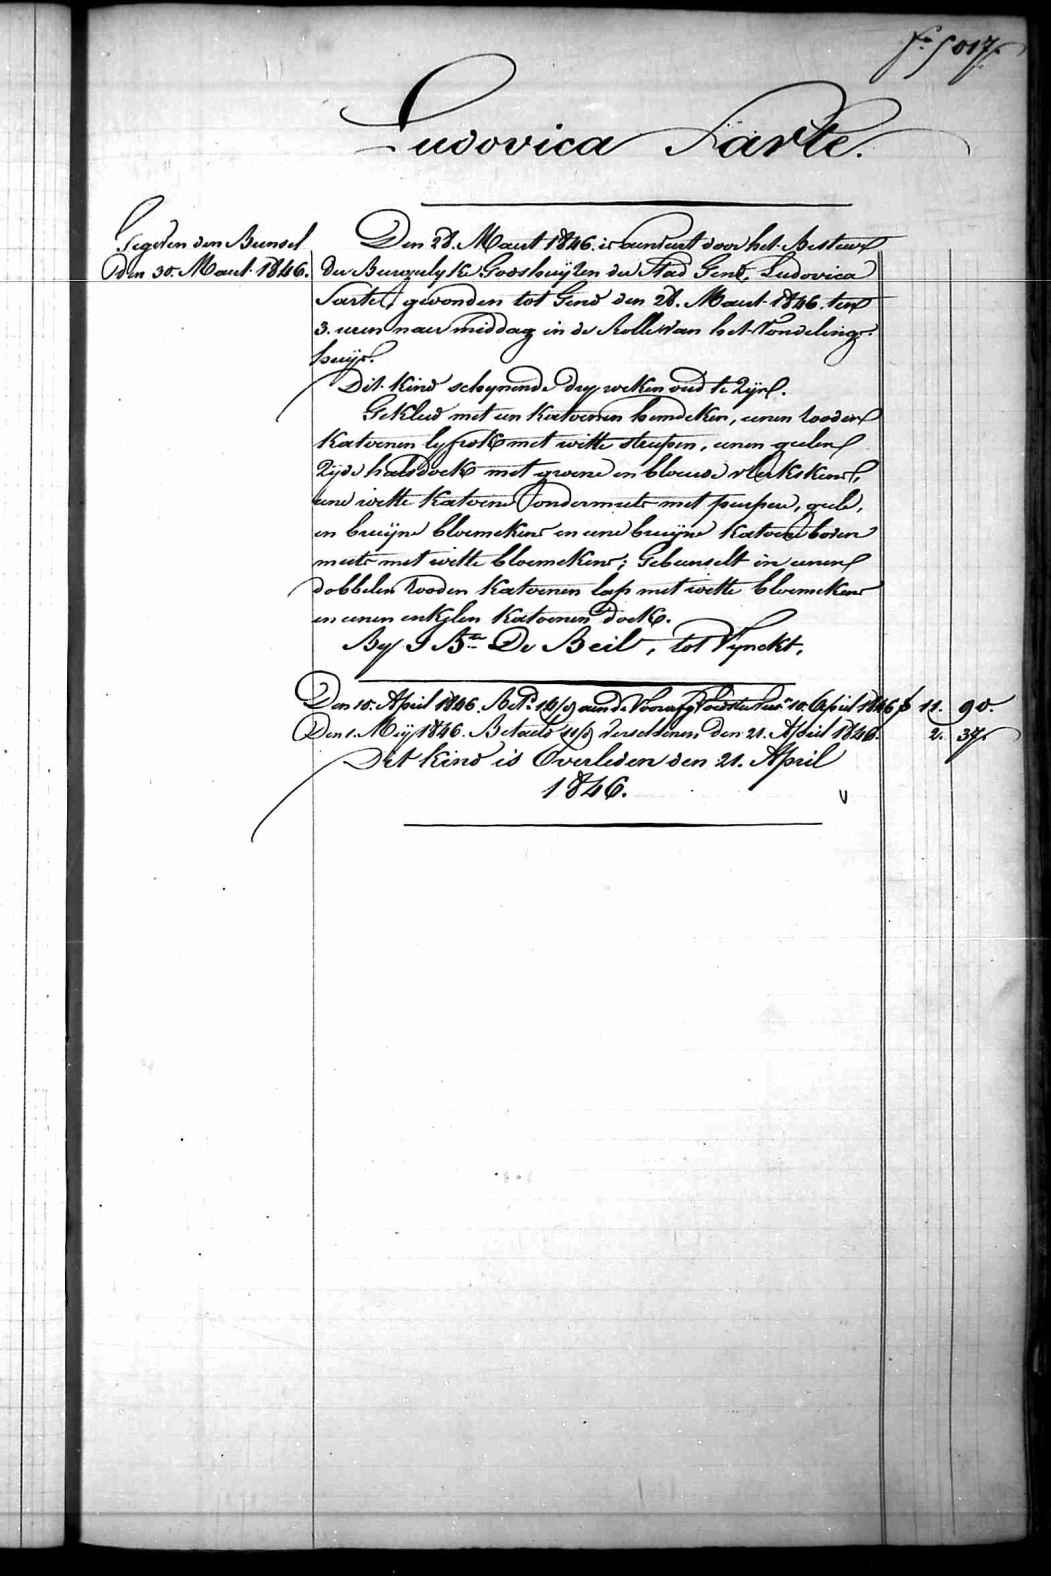 f.° 5017.
Ludovica Sarte.
Gegeven den Bunsel
den 30. Maart 1846.
Den 28. Maart 1846. is aenveirt door het Bestuer
der Burgelyke Godshuijzen der Stad Gend, Ludovica
Sarte, gevonden tot Gend den 28. Maart 1846. ten
3. uren naer middag in de Rolle van het Vondeling-
huijs.
Dit kind schynende dry weken oud te zijn.
Gekleed met een katoenen hemdeken, eenen rooden
katoenen lyfrok met witte streepen, eenen geelen
zijde halsdoek met groene en blauwe vlekskens,
eene witte katoene ondermuts met purper, geele,
en bruijne bloemekens en eene bruijne katoene boven
muts met witte bloemekens; Gebunselt in eenen
dobbelen rooden katoenen lap met witte bloemekens
en eenen enkelen katoenen doek.
By J. Bte De Beil, tot Vynckt.
Den 10. April 1846. Bet. aende Voorafg. 10. April 1846 f 11. 90.
Den 1. Mey 1846. Betaeld verschenen den 21. April 1846. 2. 37.
Dit kind is Overleden den 21. April
1846.